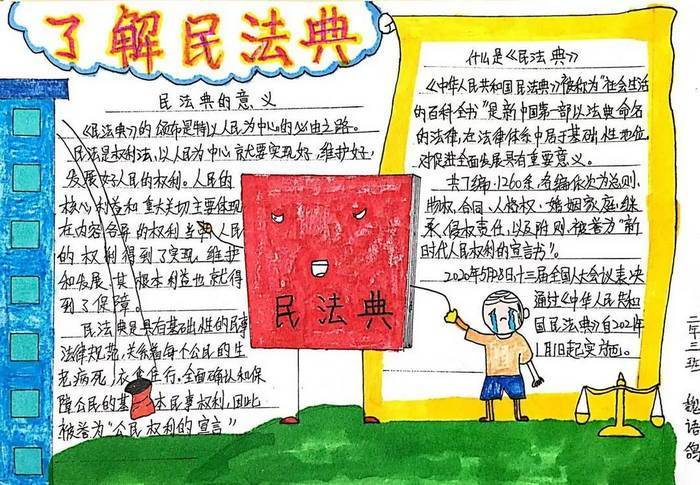 了解民法典
民法典的意义
《民法典》的颁布是特以人民为中心的必由之路。
民法是权利法,以人民为中心就要实现好,维护好,
发展好人民的权利。人民的
核心利益和重大关切主要体现
在内容合界的权利
的权利得到了实现、维护
和发展,其根本利益也就得
到了保障。
民法典是具有基础性的民事
法律规范,关系着每个公民的生
老病死,衣食住行,全面确认和保
障公民的基本民事权利,因此
被誉为“公民权利的宣言”
民法典
什么是《民法典》
《中华人民共和国民法典》被称为“社会生活
的百科全书”是新中国第一部以法典命名
的法律,在法律体系中居于基础性地位,
对促进全面发展具有重要意义。
共7编、1260条,各编依次为总则、
物权、合同、人格权、婚姻家庭、继
承、侵权责任,以及附则,被誉为“新
时代人民权利的宣言书”。
2020年5月28日十三届全国人大会议表决
通过《中华人民共和
国民法典》自2021年
1月1日起实施。
二年三班 魏语鸽